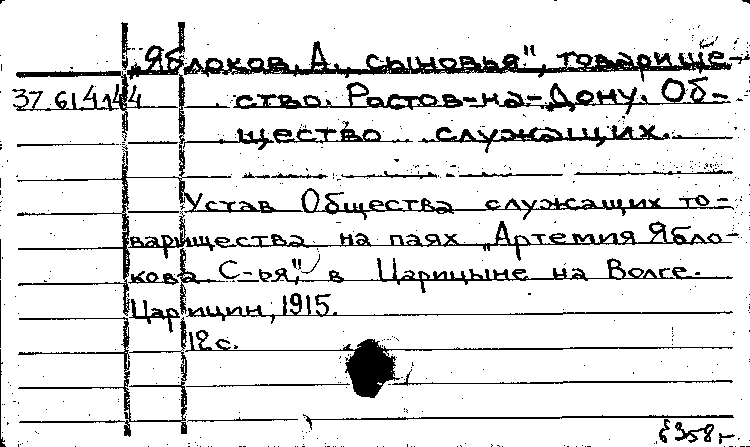 „Яблоков, А., сыновья", товарище-
37.61.4.144 ство. Ростов-на-Дону. Об-
щество служащих.
Устав Общества служащих то-
варищества на паях „Артемия Ябло-
кова С-ья", в Царицыне на Волге.
Царицин, 1915.
12 с.